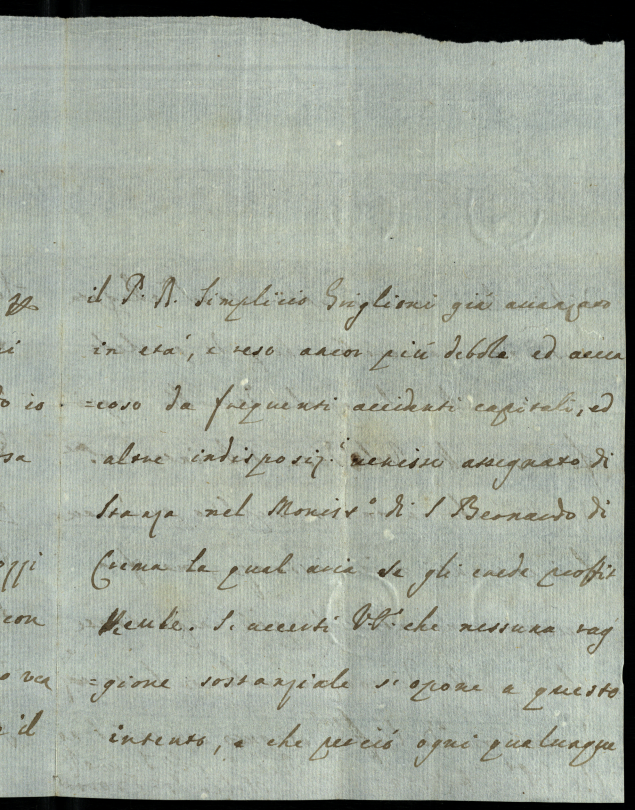 il P. A. Simpliccio Griglioni già auanzato
ni in età, e reso ancor più debole ed acciac
do io =coso da frequenti accidenti capitali, ed
sa altre indisposiz.i uenisse assegnato di
stanza nel Monist.o di S Bernardo di
oggi Crema la qual aria se gli crede proffit
con teuole. Si accerti V.P. che nessuna rag
o rea =gione sostanziale si opone a questo
e il intento, e che perciò ogni qualunque